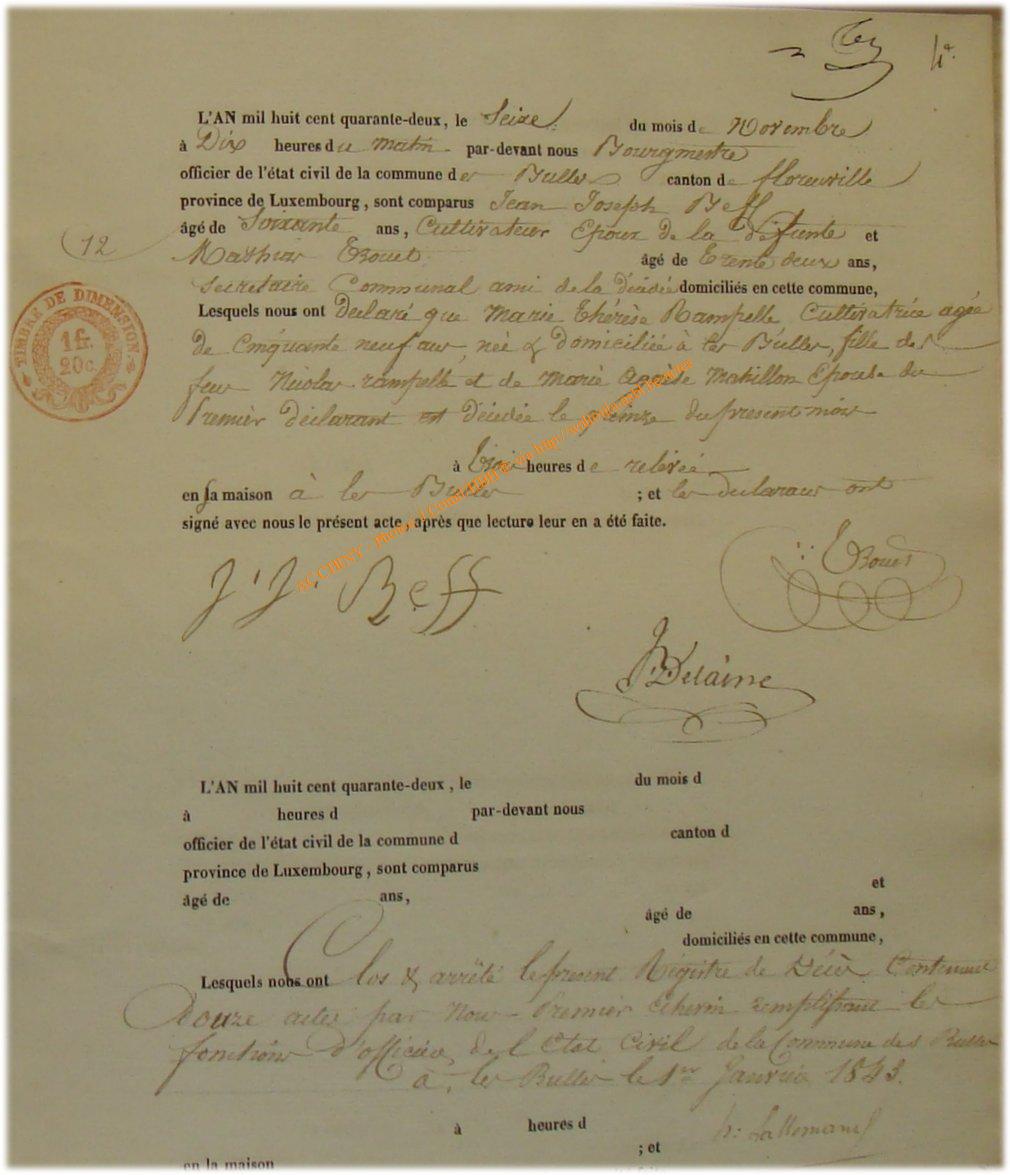 4e
L'AN mil huit cent quarante-deux, le Seize du mois de Novembre
à Dix heures du matin par-devant nous Bourgmestre
officier de l'état civil de la commune des Bulles canton de florenville
province de Luxembourg, sont comparus Jean Joseph Beff
âgé de Soixante ans, Cultivateur Epoux de la défunte et
12
Mathieu Bouet âgé de trente deux ans,
Secretaire Communal ami de la décédée domiciliés en cette commune,
TIMBRE DE DIMENSION
1 fr.
20 c.
Lesquels nous ont declaré que Marie thérèse Rampelle, Cultivatrice agée
de Cinquante neuf ans, née & domiciliée à les Bulles, fille de
feu Nicolas rampelle et de marie Agnèse Epouse du
Premier déclarant est décédée le quinze du present mois
à trois heures de relevée
en sa maison à les Bulles ; et les declarans ont
signé avec nous le présent acte, après que lecture leur en a été faite.
J. J. Beff
Bouet
Delaine
L'AN mil huit cent quarante-deux, le du mois d
à heures d par-devant nous
officier de l'état civil de la commune d canton d
province de Luxembourg, sont comparus
et
âgé de ans, âgé de ans,
domiciliés en cette commune,
Lesquels nous ont Clos & arrêté le present Régistre de Décès Contenant
Douze actes par Nous Premier Echevin remplissant les
fonctions d'officier de l'Etat Civil de la Commune des Bulles
à les Bulles le 1er Janvier 1843.
à heures d
h: Lallemand
; et
en la maison